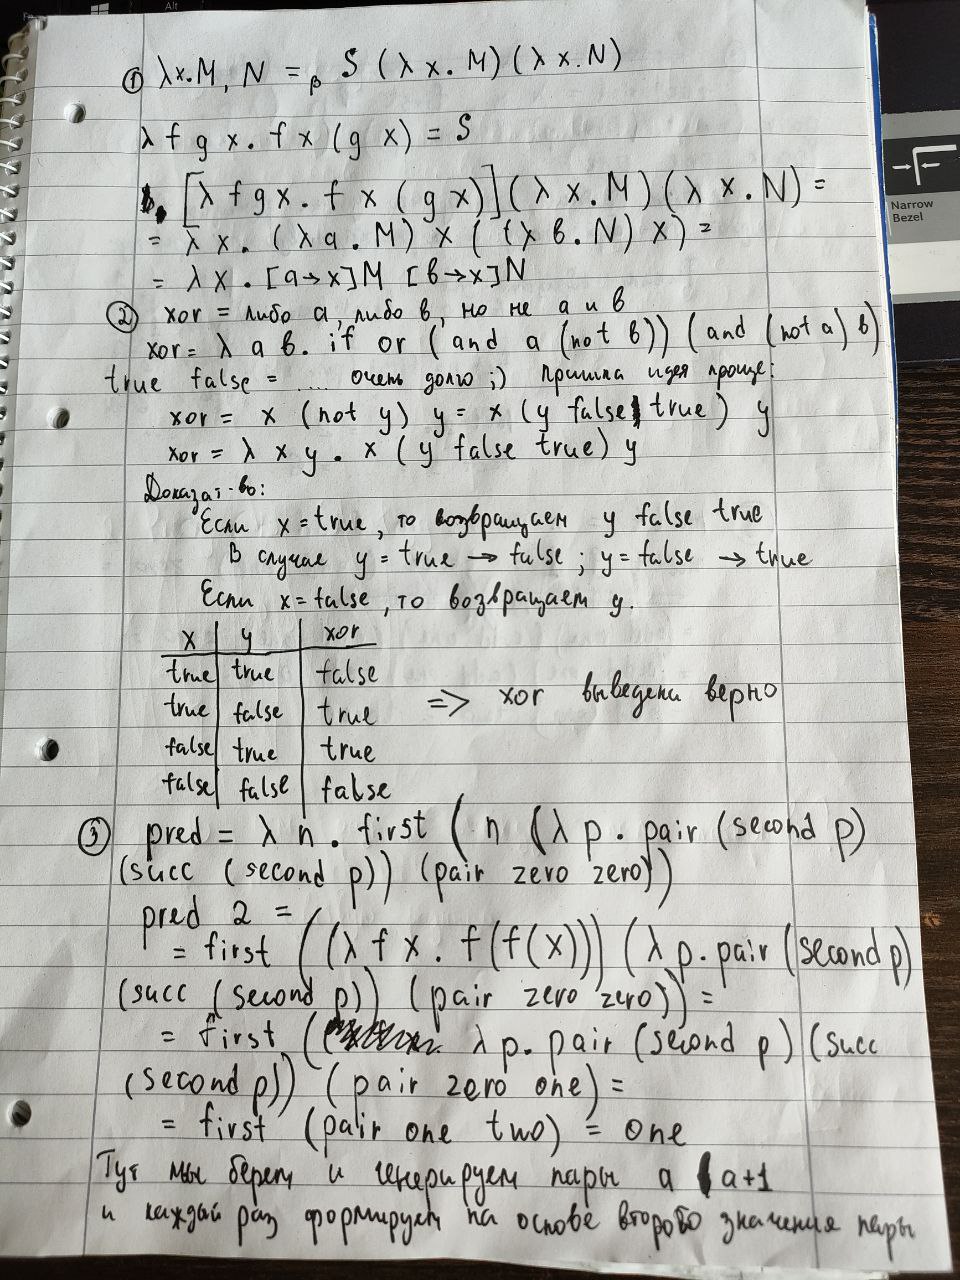 ① λx.M, N =β S (λx.M)(λx.N)
λ f g x. f x (g x) = S
[λ f g x. f x (g x)] (λ x.M) (λ x.N) =
= λ x. (λ a. M) x ((λ b. N) x) =
= λ x. [a→x]M [b→x]N
② xor = либо a, либо b, но не a и b
xor = λ a b. if or (and a (not b)) (and (not a) b)
true false = .... очень долго ;) пришла идея проще:
xor = x (not y) y = x (y false true) y
xor = λ x y. x (y false true) y
Доказат-во:
Если x = true, то возвращаем y false true
В случае y = true → false; y = false → true
Если x = false, то возвращаем y.
x y xor
true true false
true false true
=> xor выведен верно
false true true
false false false
③ pred = λ n. first (n (λ p. pair (second p)
(succ (second p)) (pair zero zero))
pred 2 =
= first ((λ f x. f(f(x))) (λ p. pair (second p)
(succ (second p)) (pair zero zero)) =
= first ( λ p. pair (second p) (succ
(second p)) (pair zero one) =
= first (pair one two) = one
Тут мы берем и генерируем пары a a+1
и каждый раз формируем на основе второго значения пары
Narrow
Bezel
Alt